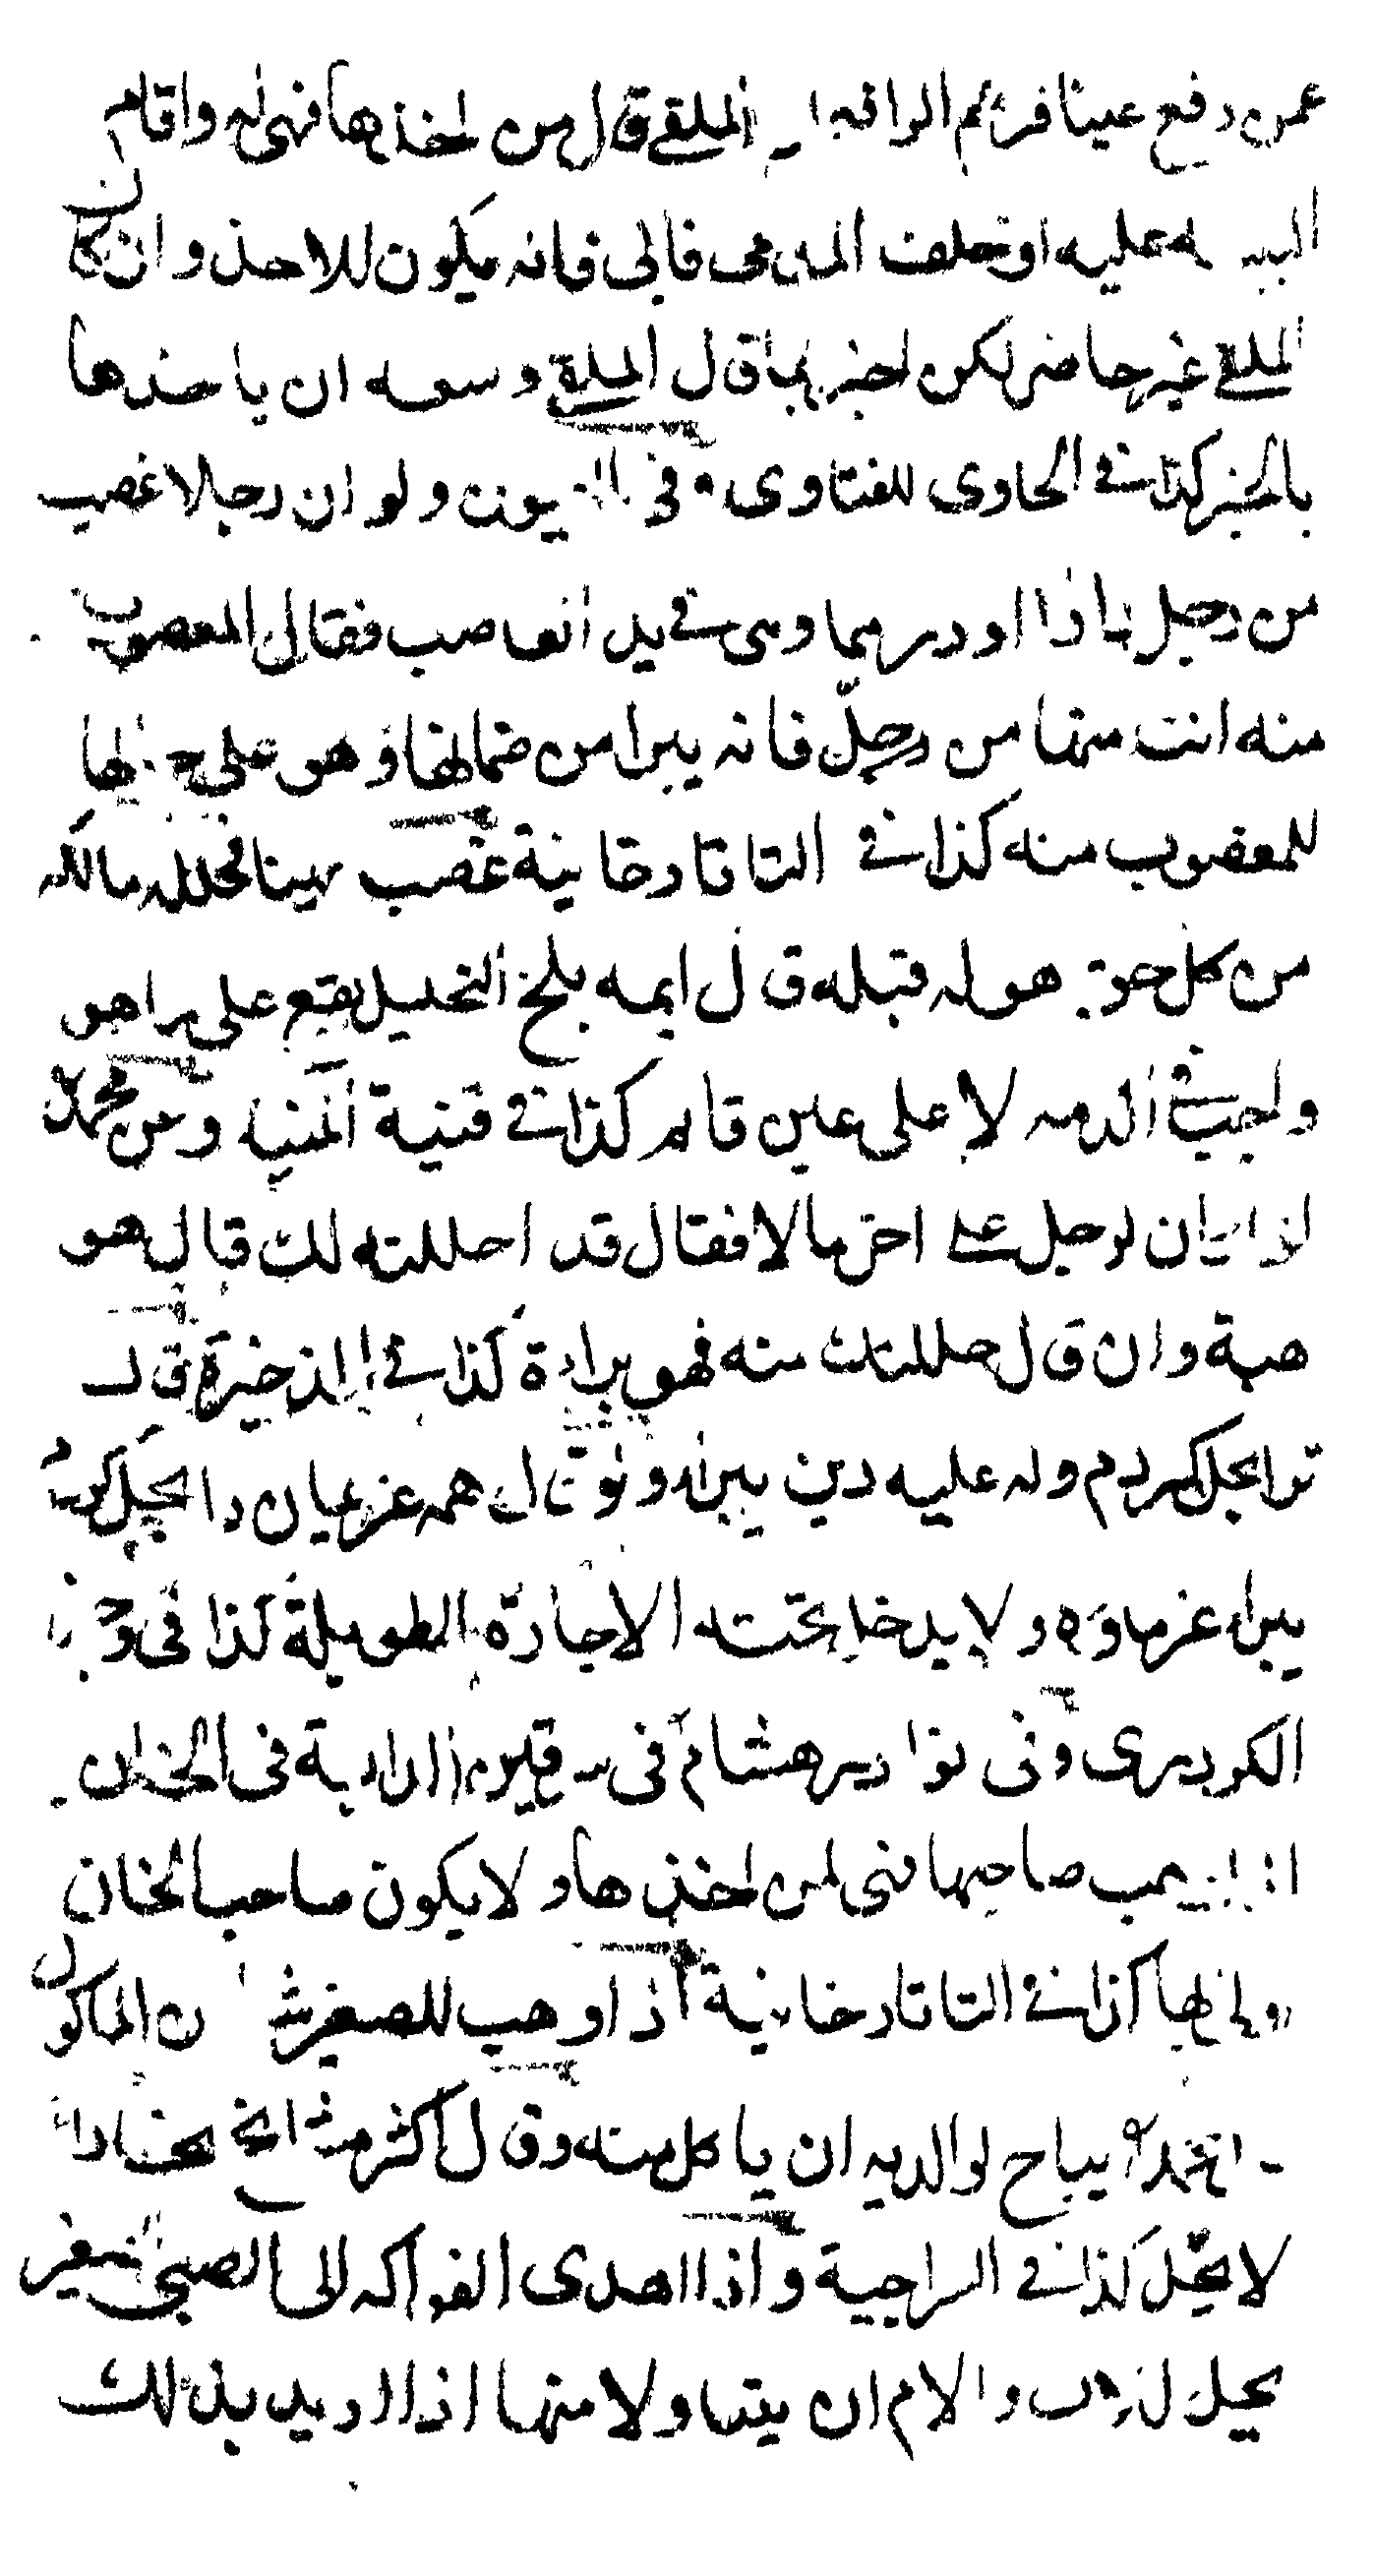 عمن دفع عينا فزعم الرافع ان الملقي قال من اخذها فهي له واقام
البينة عليه او حلف المدعى فابى فانه يكون للاخذ وان كان
الملقي غير حاضر لكن اخبر بما قال الملقي وسعه ان ياخذها
بالخبر كذا في الحاوى للفتاوى وفي العيون ولو ان رجلا غصب
من رجل او درهما وهي في يد الغاصب فقال المغصوب
منه انت منها من رجل فانه يبرا من ضمانها وهو على حالها
للمغصوب منه كذا في التاتارخانية غصب عينا فحلله مالكه
من كل حق هو له قبله قال ايمه بلخ التحليل يقع على ما هو
واجب في الذمه لا على عين قايم كذا في قنية المنية وعن محمد
اذا كان لرجل على اخر مالا فقال قد احللته لك قال هو
هبة وان قال حللتك منه فهو براءة كذا في الذخيرة قال
ترا بحل كردم وله عليه دين يبرا ولو قال همه غريمان را بحل كردم
يبرا غرماوه ولا يدخل تحته الاجارة الطويلة كذا في وجيز
الكودرى وفى نوادر هشام فى سرقين الدابة فى الخان
اذا يهب صاحبها فهى لمن اخذها ولا يكون صاحب الخان
اولى بها كذا في التاتارخانية اذا وهب للصغير شئ من الماكول
محمد يباح لوالديه ان ياكل منه وقال اكثر مشايخ بخارا
لا يحل كذا في السراجية واذا اهدى الفواكه الى الصبي الصغير
يحل للاب والام ان يتناولا منها اذا اريد بذلك